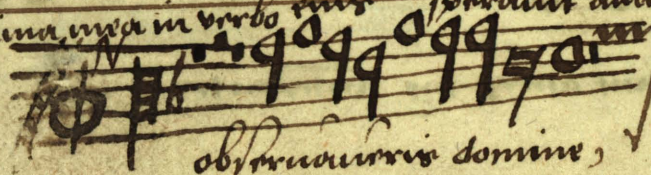 ma mea in verbo eius speravit ani
observaveris domine,